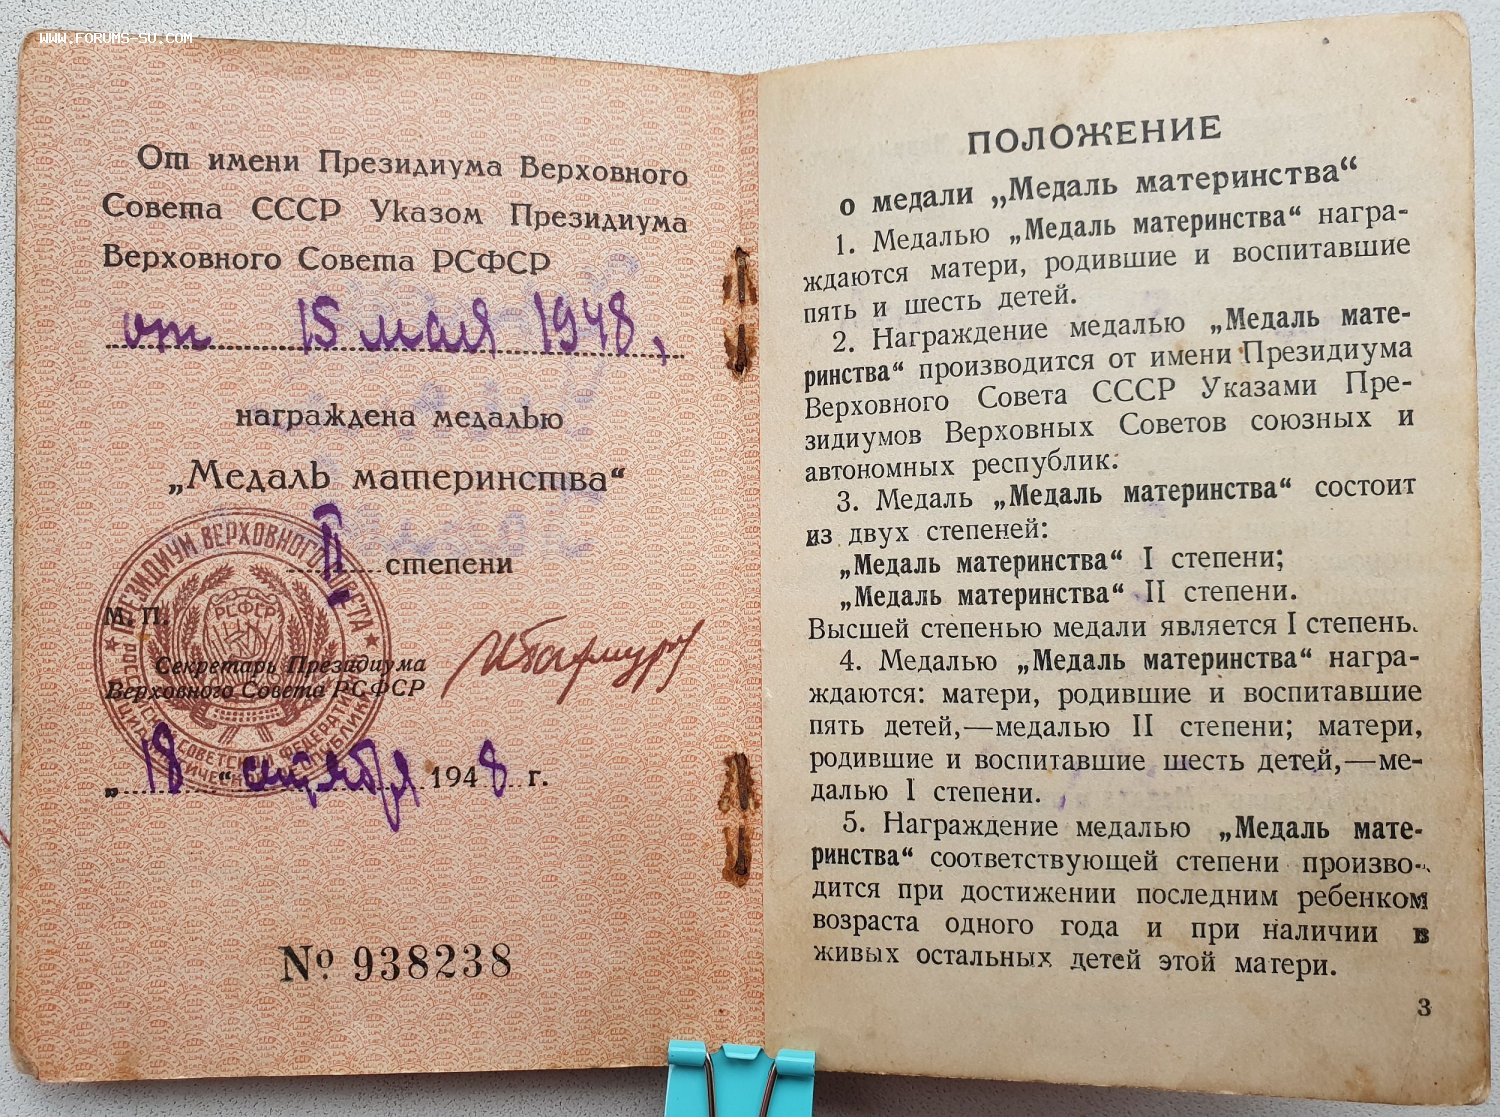 WWW.FORUMS-SU.COM
От имени Президиума Верховного
Совета СССР Указом Президиума
Верховного Совета РСФСР
от 15 мая 1948,
награждена медалью
„Медаль материнства“
II степени
М. П.
ПРЕЗИДИУМ ВЕРХОВНОГО СОВЕТА
РСФСР
Секретарь Президиума
Верховного Совета РСФСР
„18“ сентября 1948 г.
№ 938238
ПОЛОЖЕНИЕ
о медали „Медаль материнства“
1. Медалью „Медаль материнства“ награ-
ждаются матери, родившие и воспитавшие
пять и шесть детей.
2. Награждение медалью „Медаль мате-
ринства“ производится от имени Президиума
Верховного Совета СССР Указами Пре-
зидиумов Верховных Советов союзных и
автономных республик.
3. Медаль „Медаль материнства“ состоит
из двух степеней:
„Медаль материнства“ I степени;
„Медаль материнства“ II степени.
Высшей степенью медали является I степень.
4. Медалью „Медаль материнства“ награ-
ждаются: матери, родившие и воспитавшие
пять детей,—медалью II степени; матери,
родившие и воспитавшие шесть детей,—ме-
далью I степени.
5. Награждение медалью „Медаль мате-
ринства“ соответствующей степени произво-
дится при достижении последним ребенком
возраста одного года и при наличии в
живых остальных детей этой матери.
3